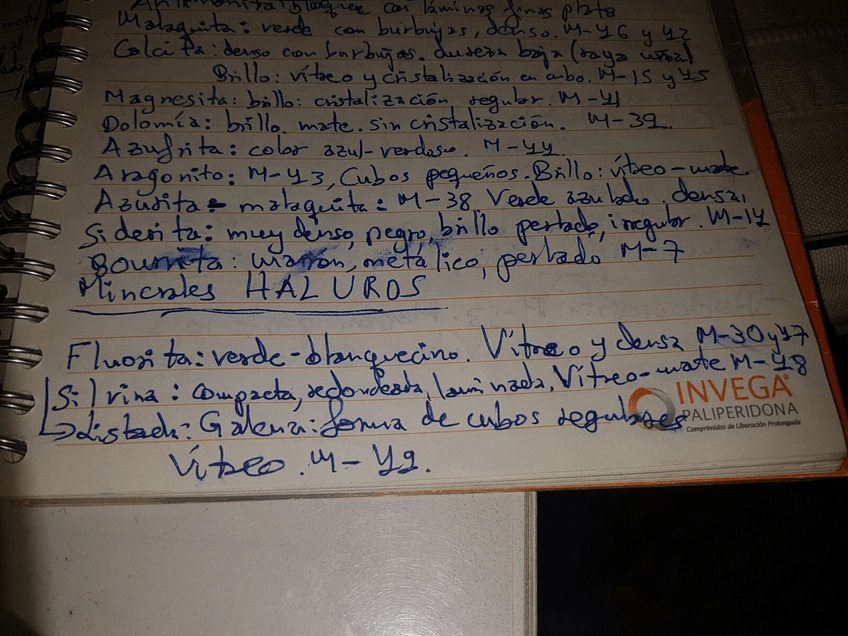 Antimonita: bloques con láminas finas plata.
Malaquita: verde con burbujas, denso. M-46 y 42
Calcita: denso con burbujas. dureza baja (raya uña)
Brillo: vítreo y cristalización en cubo. M-15 y 45
Magnesita: brillo: cristalización regular. M-41
Dolomía: brillo mate. sin cristalización. M-39.
Azufrita: color azul-verdoso. M-44.
Aragonito: M-43, Cubos pequeños. Brillo: vítreo-mate.
Azurita - malaquita: M-38 Verde azulado, densa,
Siderita: muy denso, negro, brillo perlado, irregular. M-14
marrón, metálico, perlado M-7
Minerales HALUROS
Fluorita: verde-blanquecino. Vítreo y densa M-30 y 47
Silvina: Compacta, redondeada, laminada. Vítreo-mate M-48
Galena: forma de cubos regulares
Vítreo. M-49.
INVEGA®
PALIPERIDONA
Comprimidos de Liberación Prolongada